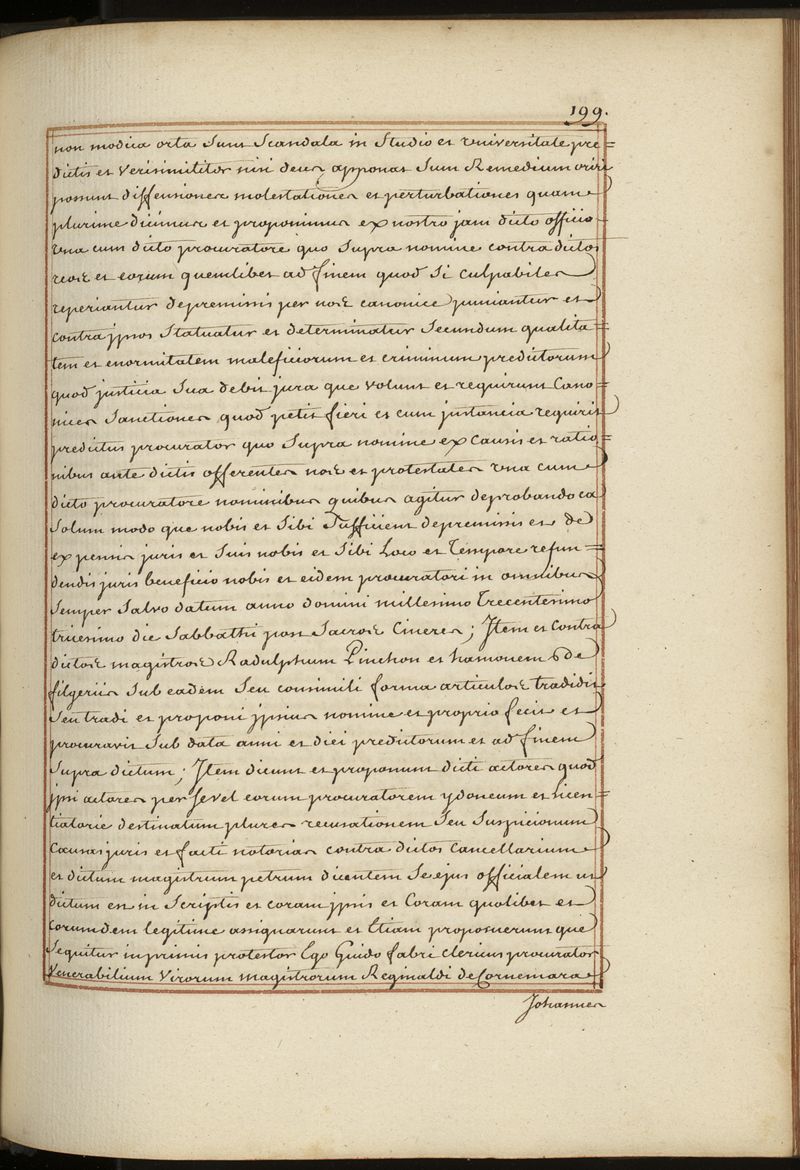 199.
non modica orta Sunt Scandala in Studio et universitate pre=
dictis et verisimiliter nisi deus apponat Sum Remedium oriri
possunt dissensiones molestationes et perturbationes quam
plurime dicimus et proponimus ex nostro jam dicto officio
una cum dicto procuratore quo Supra nomine contra dictos
reos et eorum quemlibet ad finem quod Si culpabiles
reperiantur de premissis per nos canonice puniantur et
contra ipsos Statuatur et determinatur Secundum qualita=
tem et enormitatem maleficiorum et criminum predictorum
quod justicia Sua debit jura que volunt et requirunt Cano=
nice Sanctiones quod petit fieri et cum justancia requirit
predictus procurator quo Supra nomine ex causis et ratio=
nibus ante dictis offerentes nos et protestates una cum
dicto procuratore nominibus quibus agitur de probando ea
Solum modo que nobis et Sibi Sufficient de premissis et de
expensis juris et Suis nobis et Sibi Loco et Tempore refun=
dendis juris beneficio nobis et eidem procuratori in omnibus
Semper Salvo datum anno domini millesimo Trecentesimo
tricesimo die Sabbathi post Sacros Cineres; Item et Contra
dictos magistros Radulphum Pinchon et hamonem de
filgeriis Sub eadem Seu consimili forma articulos tradidit
Seu tradi et proponi ipsius nomine et proprio fecit et
procuravit Sub data anni et diei predictorum et ad finem
Supra dictum; Item dicunt et proponunt dicti actores quod
ipsi actores per Se vel eorum procuratorem ydoneum et Licen=
tiatorie destinatum plures recusationem Seu Suspicionum
Causas juris et facti notorias contra dictos Cancellarium
et dictum magistrum petrum dicentem Se ejus officialem ut
dictum est in Scriptis et coram ipsis et Coram quolibet et
corumdem legitime assignarunt et Etiam proposuerunt que
Sequitur in primis protestor Ego Guido fabri clericus procurator
Venerabilium Virorum magistrorum Reginaldi de Cornemara
Johannes